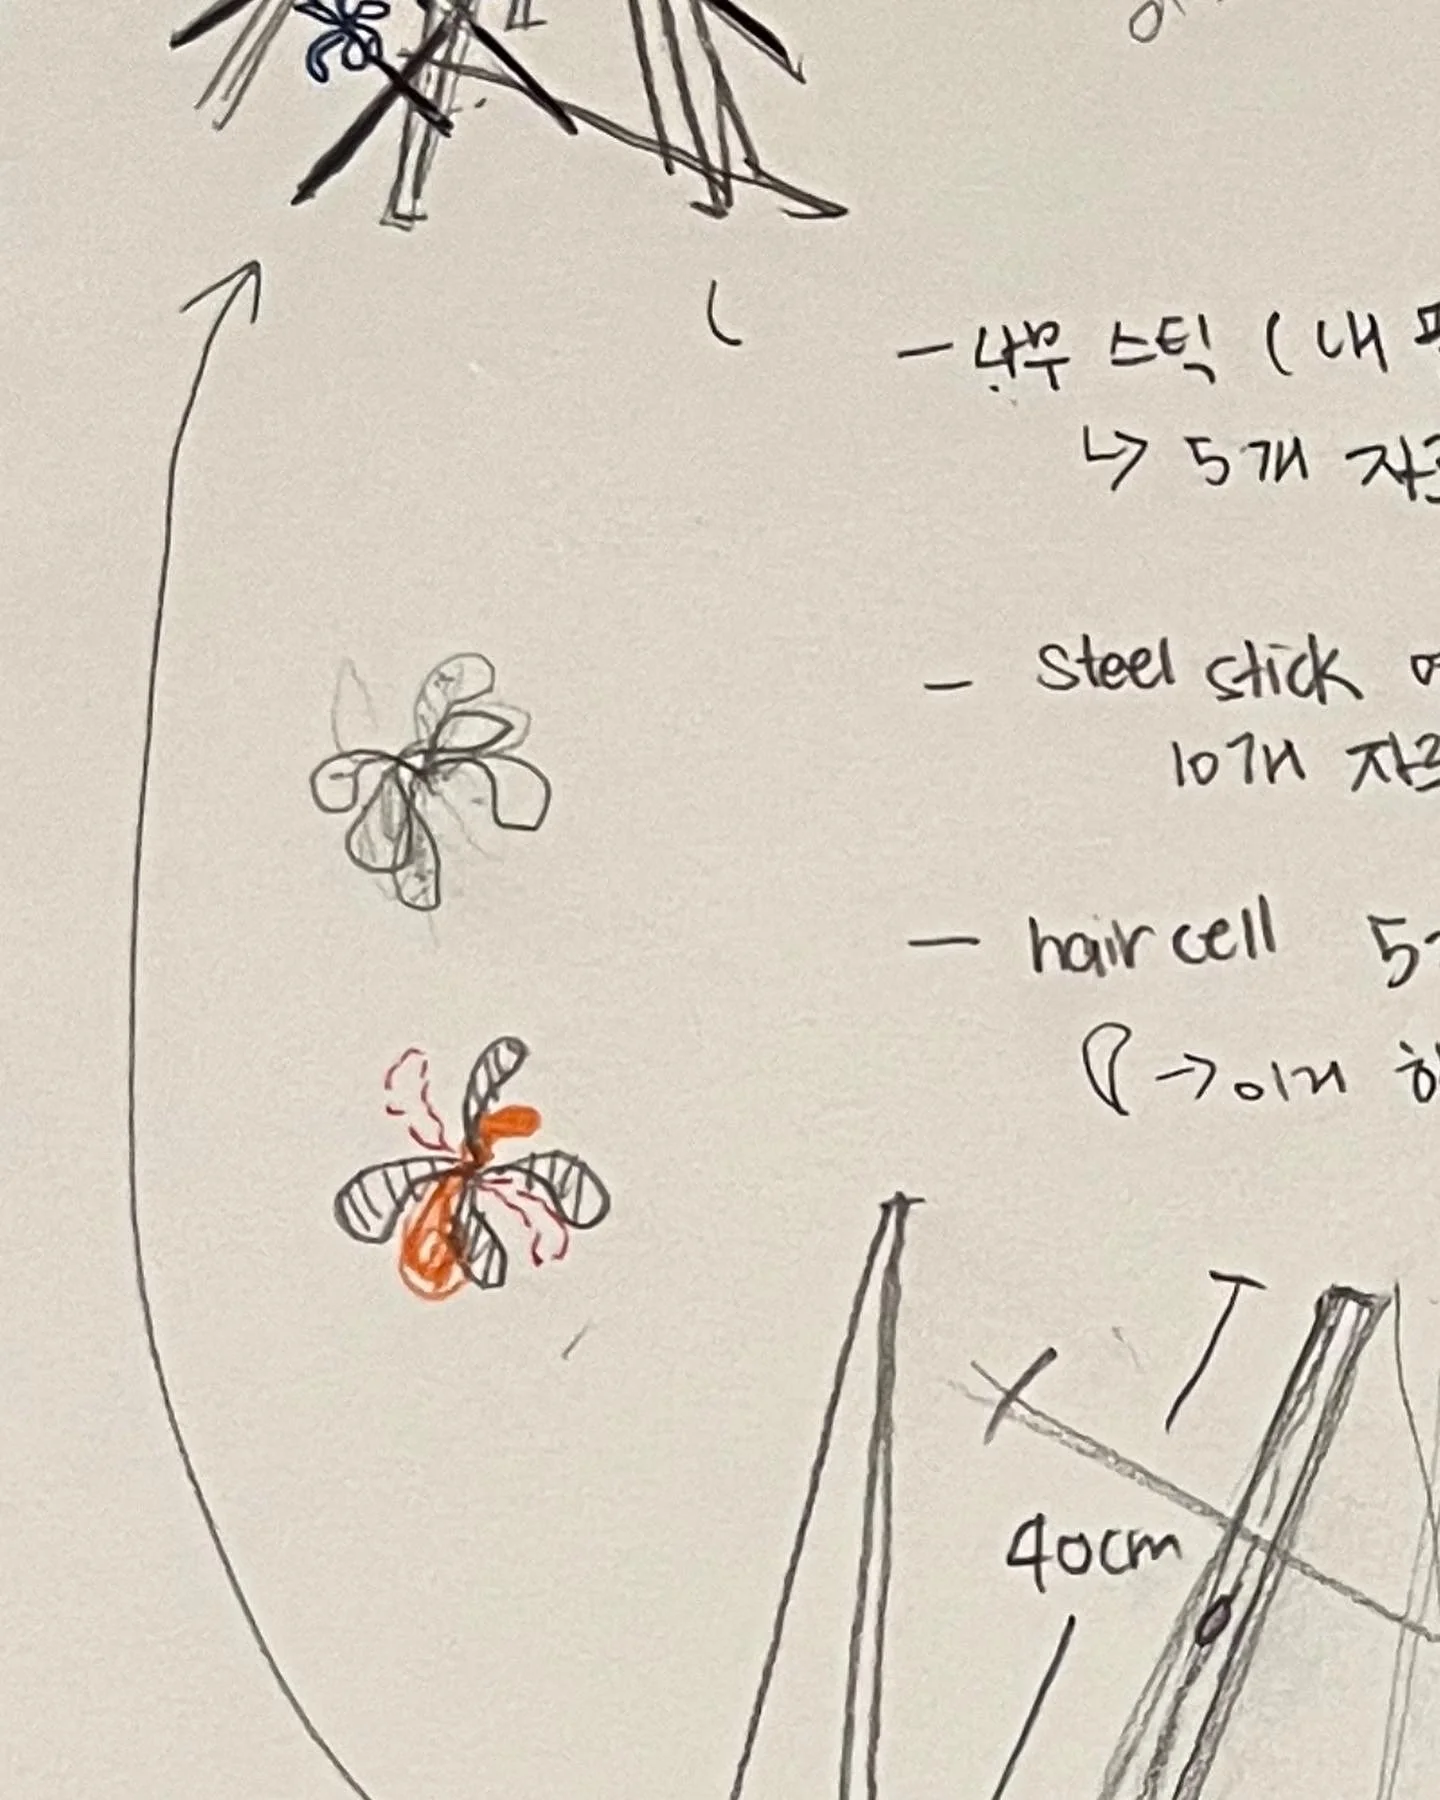 - 나무 스틱 ( 내
↳ 5개
- steel stick
10개
- hair cell
→ 이거
40cm